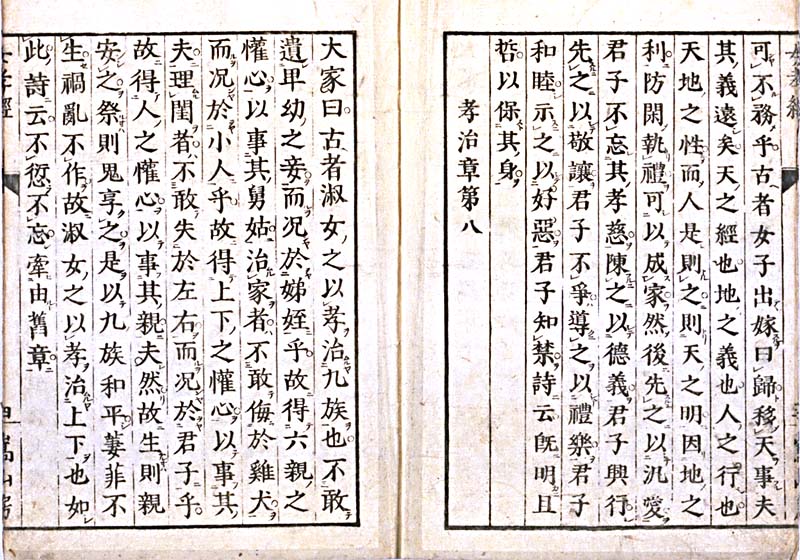 可不務乎古者女子出嫁曰歸移天事夫
其義遠矣天之經也地之義也人之行也
天地之性而人是則之則天之明因地之
利防閑執禮可以成家然後先之以汎愛
君子不忘其孝慈陳之以德義君子興行
先之以敬讓君子不爭導之以禮樂君子
和睦示之以好惡君子知禁詩云旣明且
哲以保其身
孝治章第八
大家曰古者淑女之以孝治九族也不敢
遺卑幼之妾而况於娣姪乎故得六親之
懽心以事其舅姑治家者不敢侮於雞犬
而况於小人乎故得上下之懽心以事其
夫理閨者不敢失於左右而况於君子乎
故得人之懽心以事其親夫然故生則親
安之祭則鬼享之是以九族和平萋菲不
生禍亂不作故淑女之以孝治上下也如
此詩云不愆不忘率由舊章